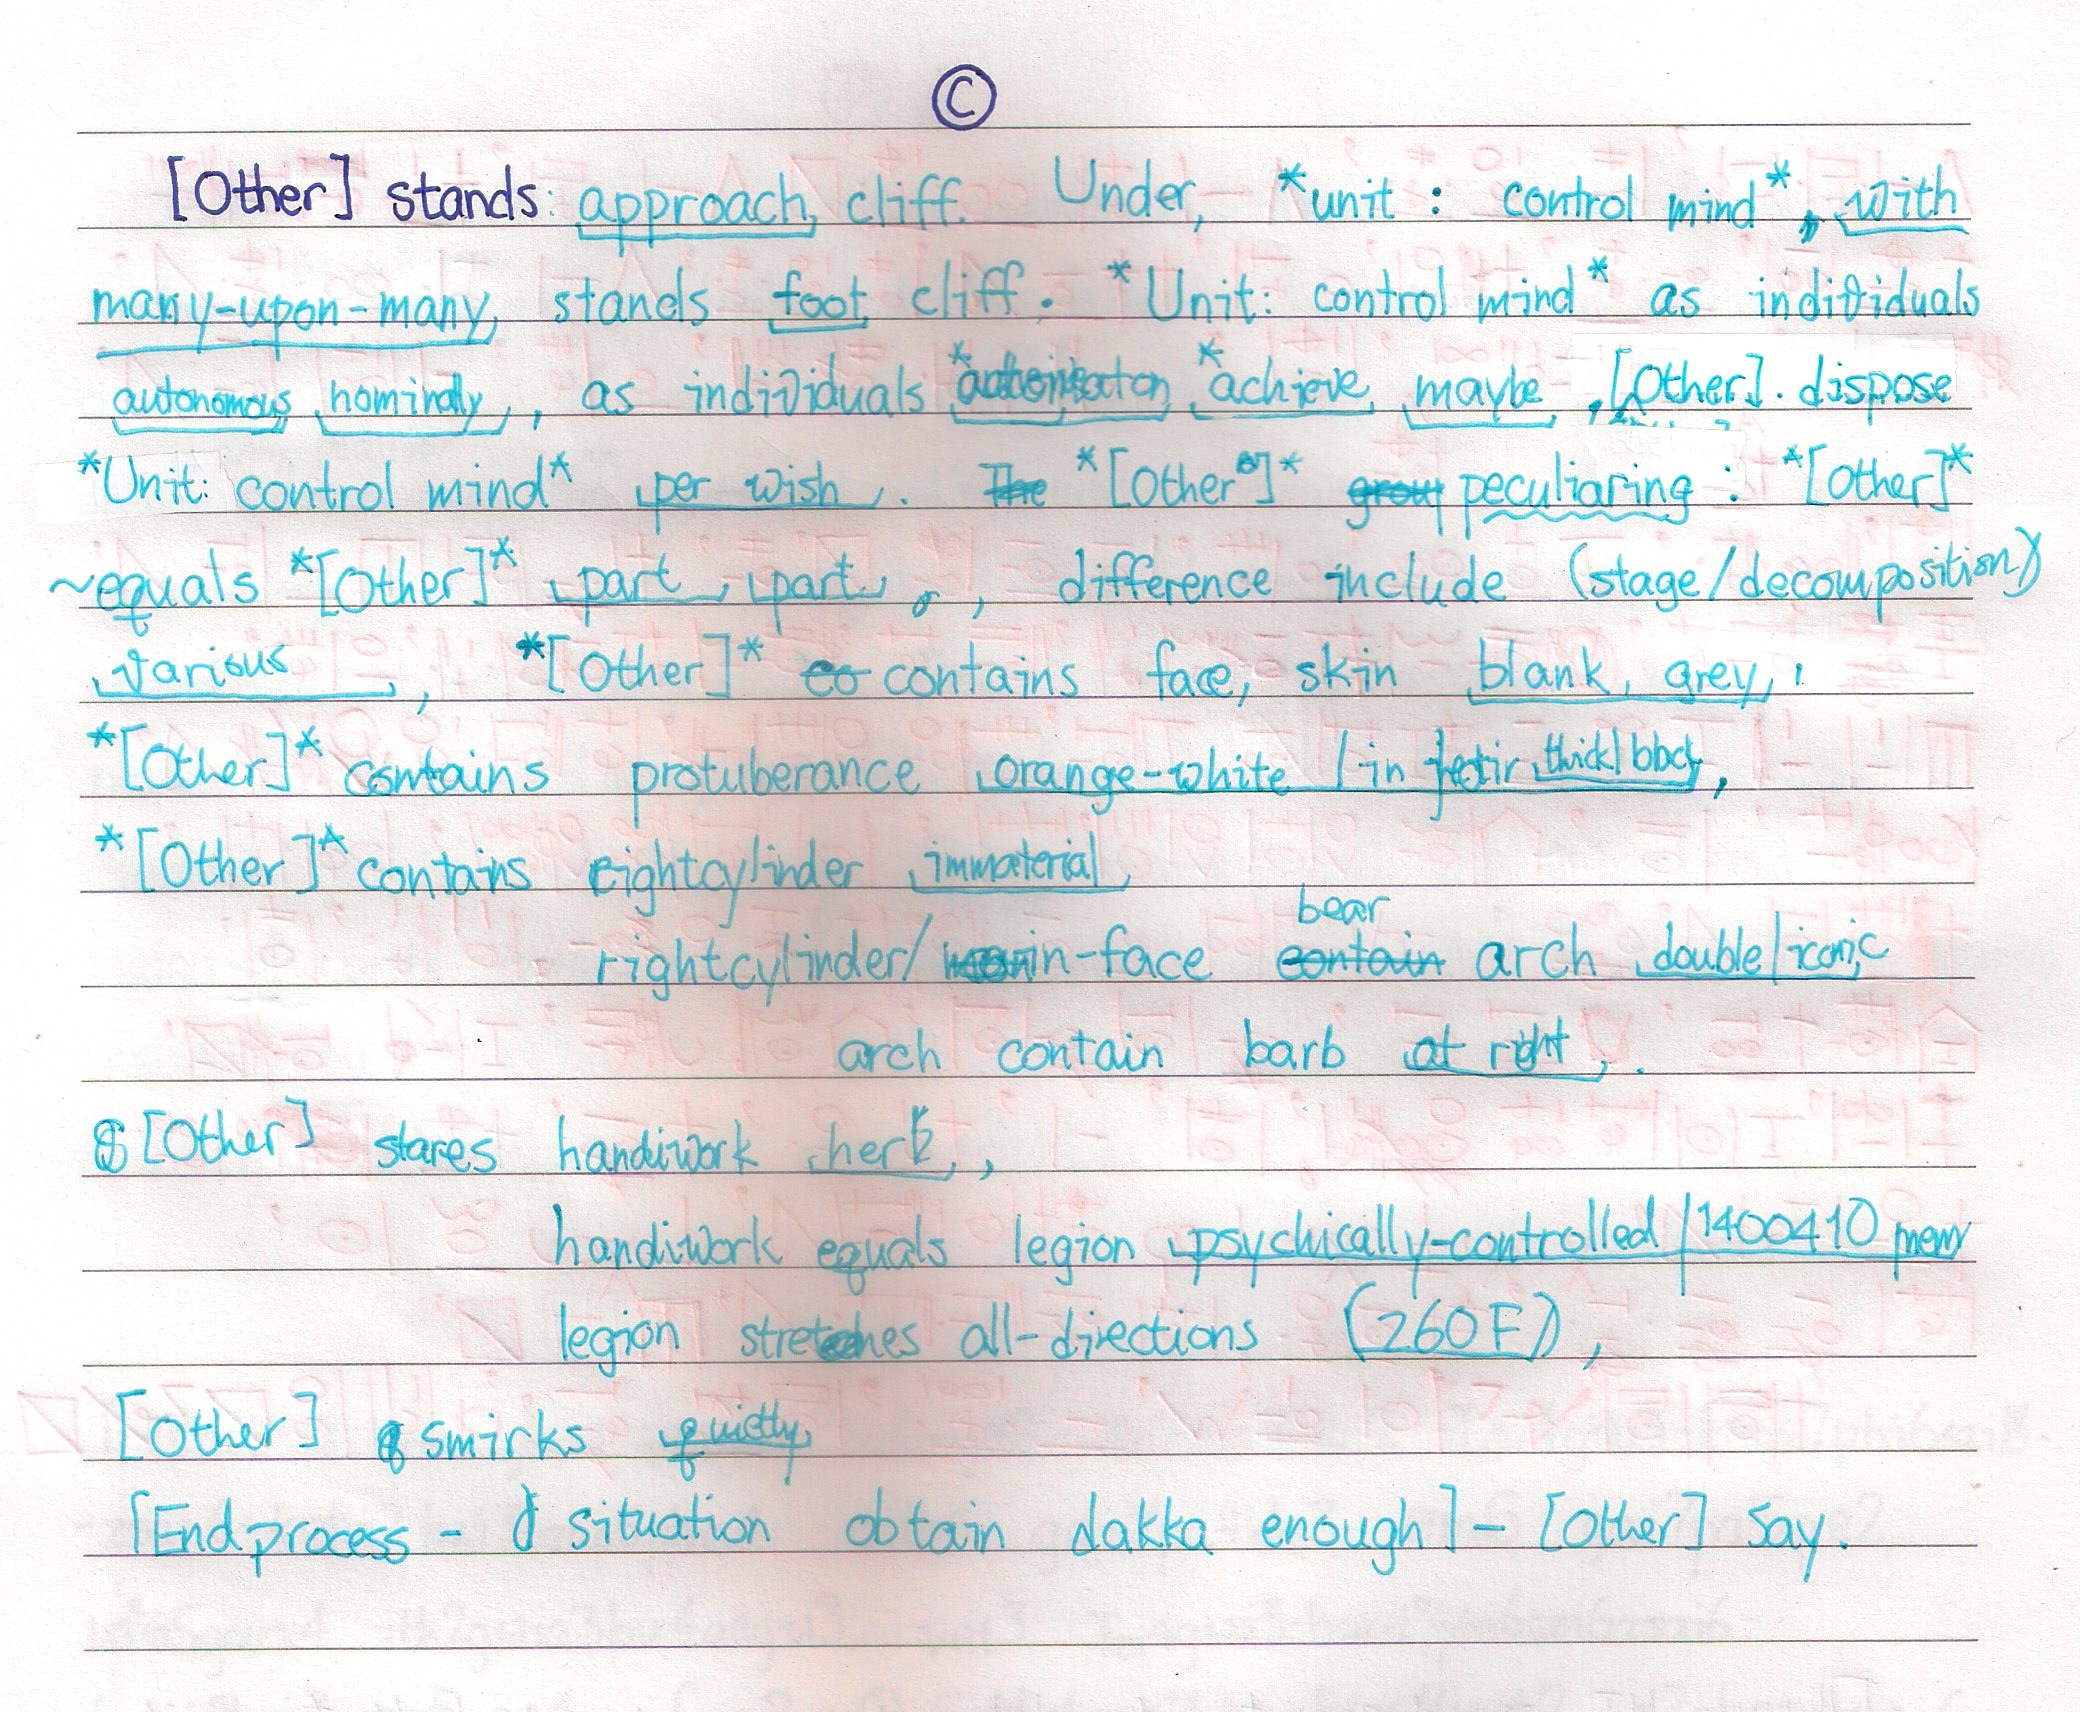 ©
[Other] stands: approach cliff. Under, *unit : control mind*, with
many-upon-many stands foot cliff. *Unit: control mind* as individuals
autonomous nominally, as individuals * *achieve maybe, [Other]. dispose
*Unit: control mind* per wish. The *[Other]* peculiaring : *[Other]*
~equals *[Other]* part part, difference include (stage/decomposition)
various, *[Other]* co contains face, skin blank, grey,
*[Other]* contains protuberance orange-white /in thick/
*[Other]* contains rightcylinder immaterial
bear
rightcylinder/ in-face contain arch double/iconic
arch contain barb at right.
[Other] stares handiwork her,
handiwork equals legion psychically-controlled / 1400410
legion stretches all-directions (260F),
[Other] smirks quietly
[End process - situation obtain dakka enough] - [Other] say.